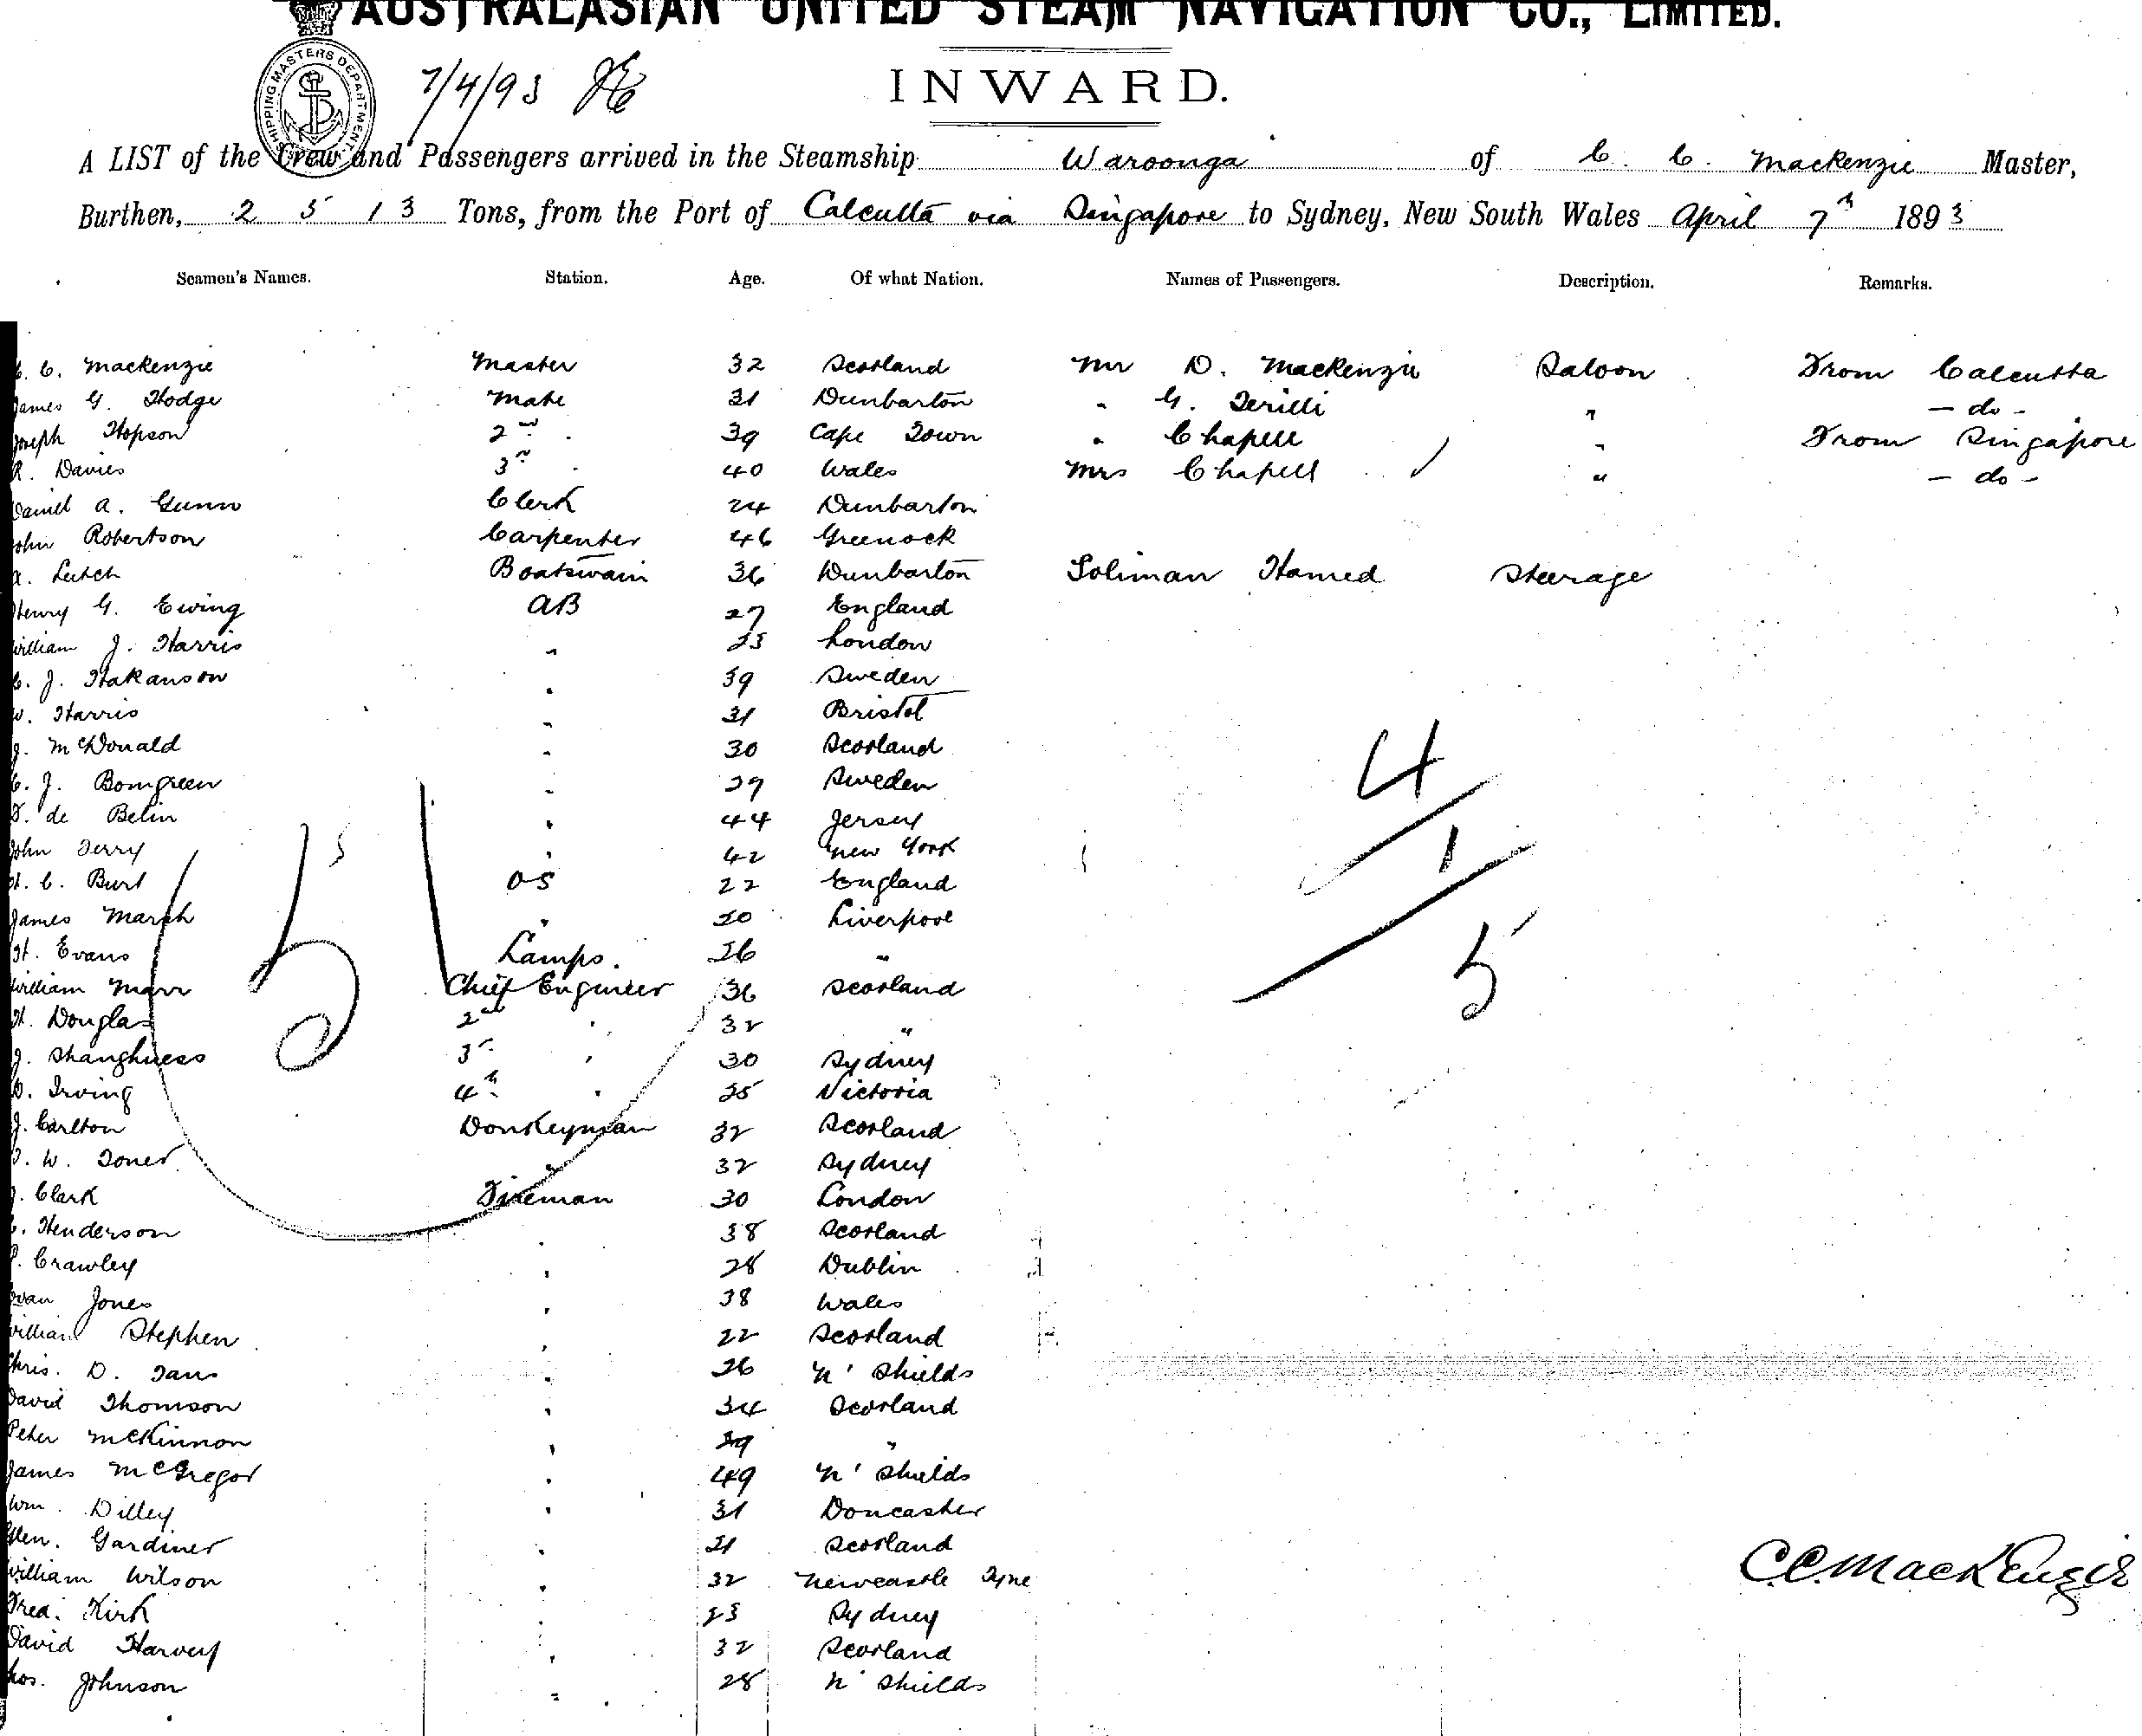 AUSTRALASIAN UNITED STEAM NAVIGATION CO., LIMITED.
SHIPPING MASTERS DEPARTMENT
7/4/93
INWARD.
A LIST of the Crew and Passengers arrived in the Steamship Waroonga of C. C. Mackenzie Master,
Burthen, 2513 Tons, from the Port of Calcutta via Singapore to Sydney, New South Wales April 7th 1893
Seamen's Names. Station. Age. Of what Nation. Names of Passengers. Description. Remarks.
C. C. Mackenzie Master 32 Scotland Mr D. Mackenzie Saloon From Calcutta
James G. Hodge Mate 31 Dunbarton " G. " - do -
Joseph Hopson 2nd " 39 Cape Town " Chapell " From Singapore
R. Davies 3rd " 40 Wales Mrs Chapell " - do -
Daniel A. Gunn Clerk 24 Dunbarton
John Robertson Carpenter 46 Greenock
A. Leitch Boatswain 36 Dunbarton Soliman Hamed Steerage
Henry G. Ewing AB 27 England
William J. Harris " London
C. J. Hakanson " 39 Sweden
W. Harris " 31 Bristol
J. McDonald " 30 Scotland
C. J. Bomgreen " 29 Sweden
de Belin " 44 Jersey
John Terry " 42 New York
H. C. Burt OS 22 England
James Marsh " 20 Liverpool
H. Evans Lamps. 26 "
William Marr Chief Engineer 36 Scotland
H. Douglas 2nd " 32 "
J. Shanghness 3rd " 30 Sydney
D. Irving 4th " 25 Victoria
J. Carlton Donkeyman 32 Scotland
W. Toner " 32 Sydney
J. Clark Fireman 30 London
Henderson " 38 Scotland
P. Crawley " 28 Dublin
Evan Jones " 38 Wales
William Stephen " 22 Scotland
Chris. D. " 26 N' Shields
David Thomson " 34 Scotland
Peter McKinnon " 29 "
James McGregor " 49 N' Shields
Wm. Dilley " 31 Doncaster
Gardiner " 21 Scotland
William Wilson " 32 Newcastle Tyne
Fred. Kirk " 23 Sydney
David Harvey " 32 Scotland
Thos. Johnson " 28 N' Shields
4
1
5
51
C.C. MacKenzie